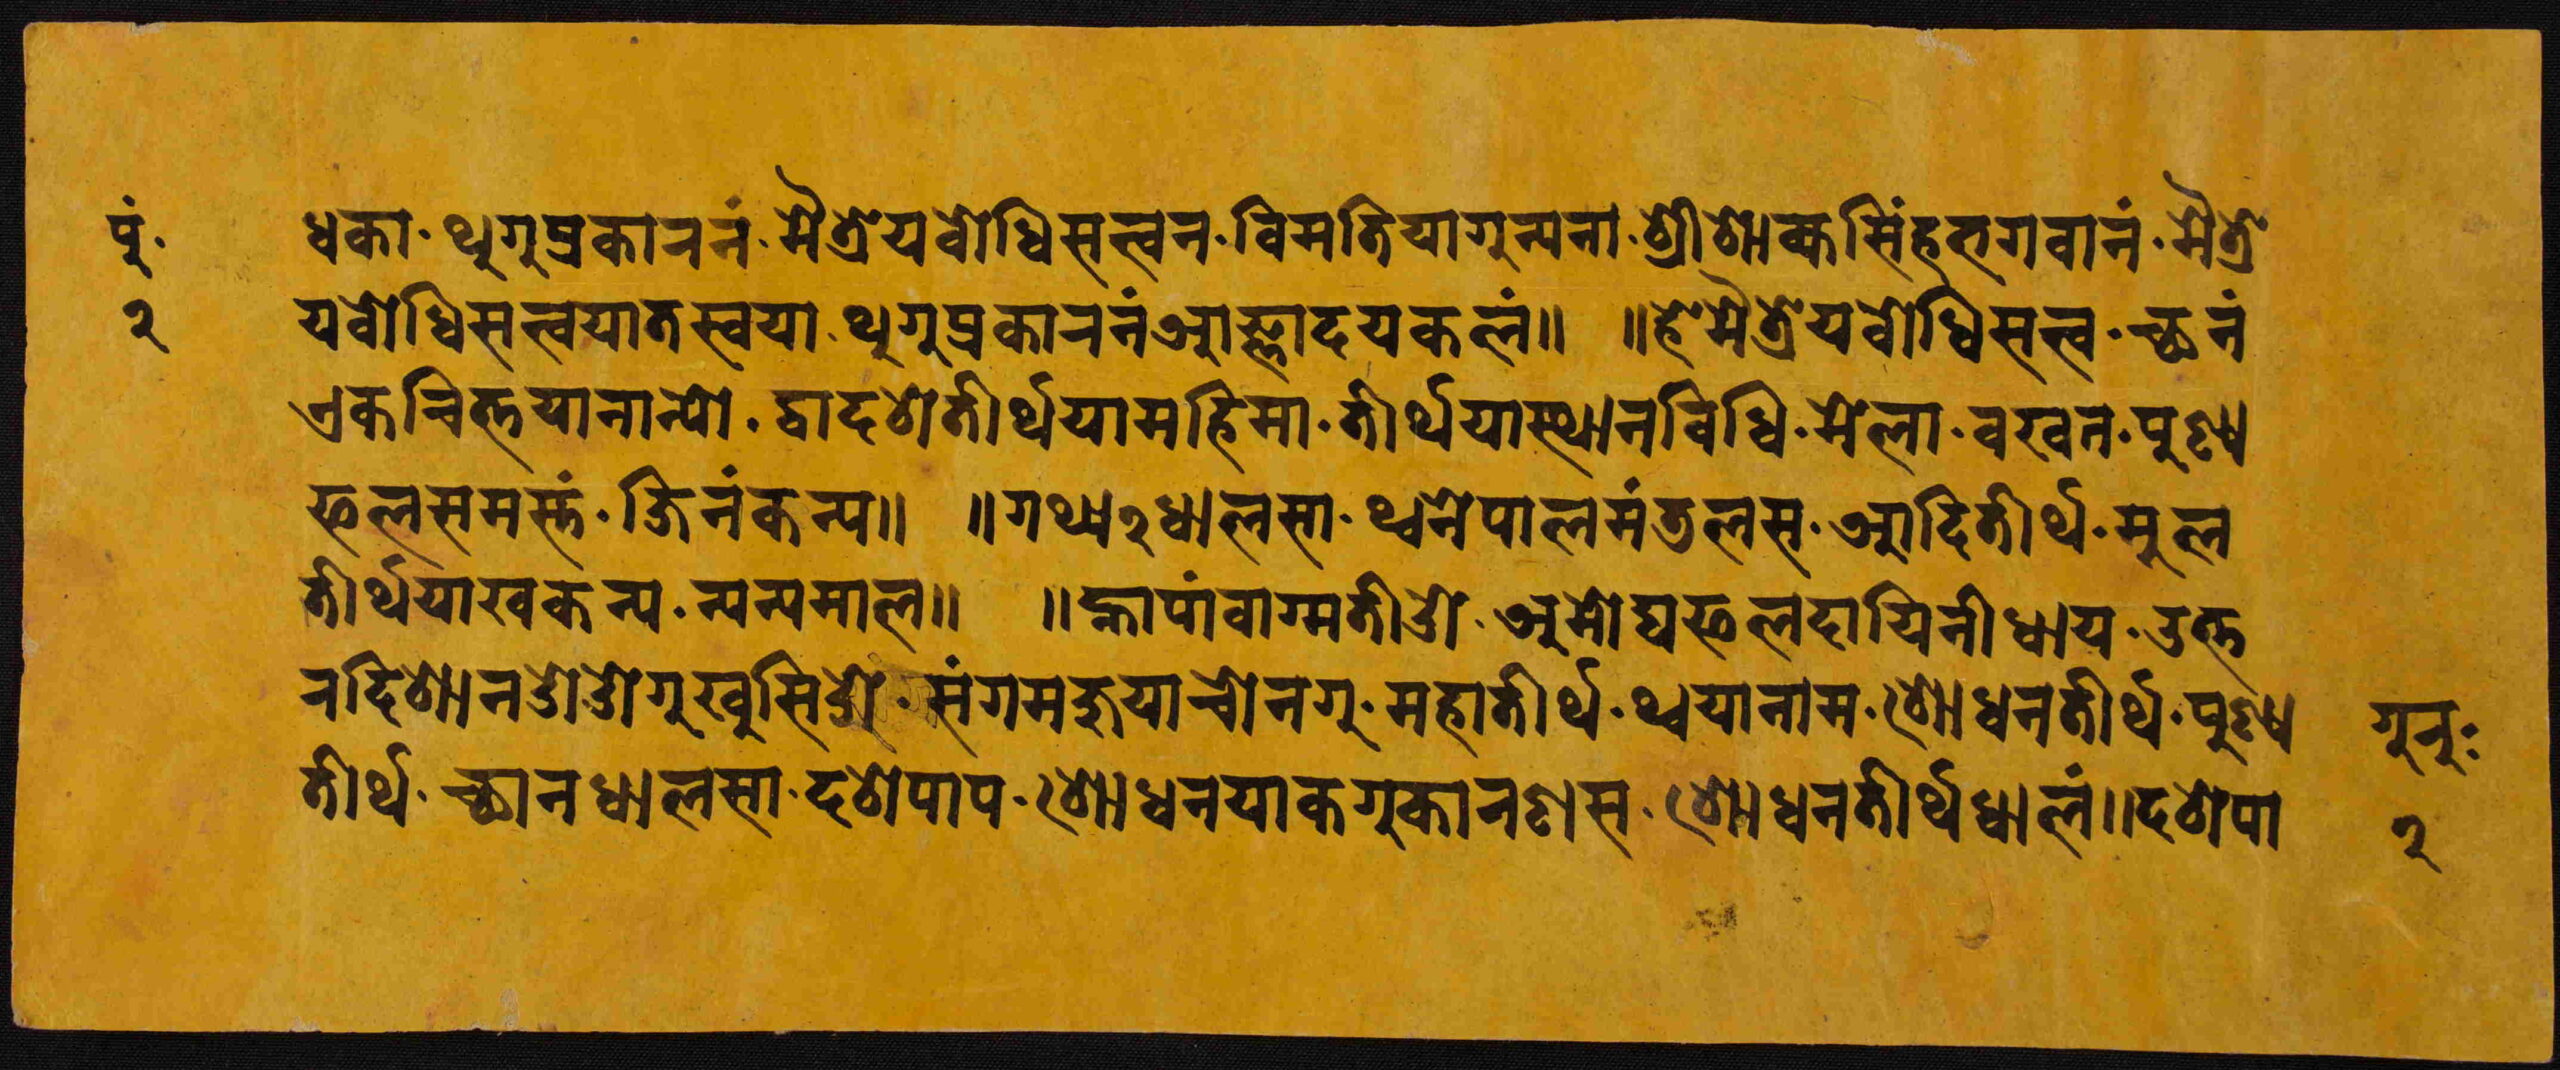 पुं·
२
धका· थुगुप्रकारनं· मैत्रेयबोधिसत्त्वन· विमतियागुन्यना· श्रीशाक्यसिंहभगवानं· मैत्रे
यबोधिसत्त्वयातस्वया· थुगुप्रकारनंआज्ञादयकलं॥ ॥हेमैत्रेयबोधिसत्त्व· छनं
एकचित्तयानान्यो· द्वादशतीर्थयामहिमा· तीर्थयास्थानविधि· मेला· वखन· पुण्य
फलसमस्तं· जिनंकन्य॥ ॥गथ्य२धालसा· थ्वनेपालमंडलस· आदितीर्थ· मुल
तीर्थयाखकन्य· न्यन्यमाल॥ ॥ह्नापांवाग्मतीओ· अमोघफलदायिनीधाय· उत्त
रदिशानओओगुखुसिओ· संगमजुयाचोनगु· महातीर्थ· थ्वयानाम· शोधनतीर्थ· पुण्य
तीर्थ· छानधालसा· दशपाप· शोधनयाकगुकारणस· शोधनतीर्थधालं॥दशपा
गुरुः
२